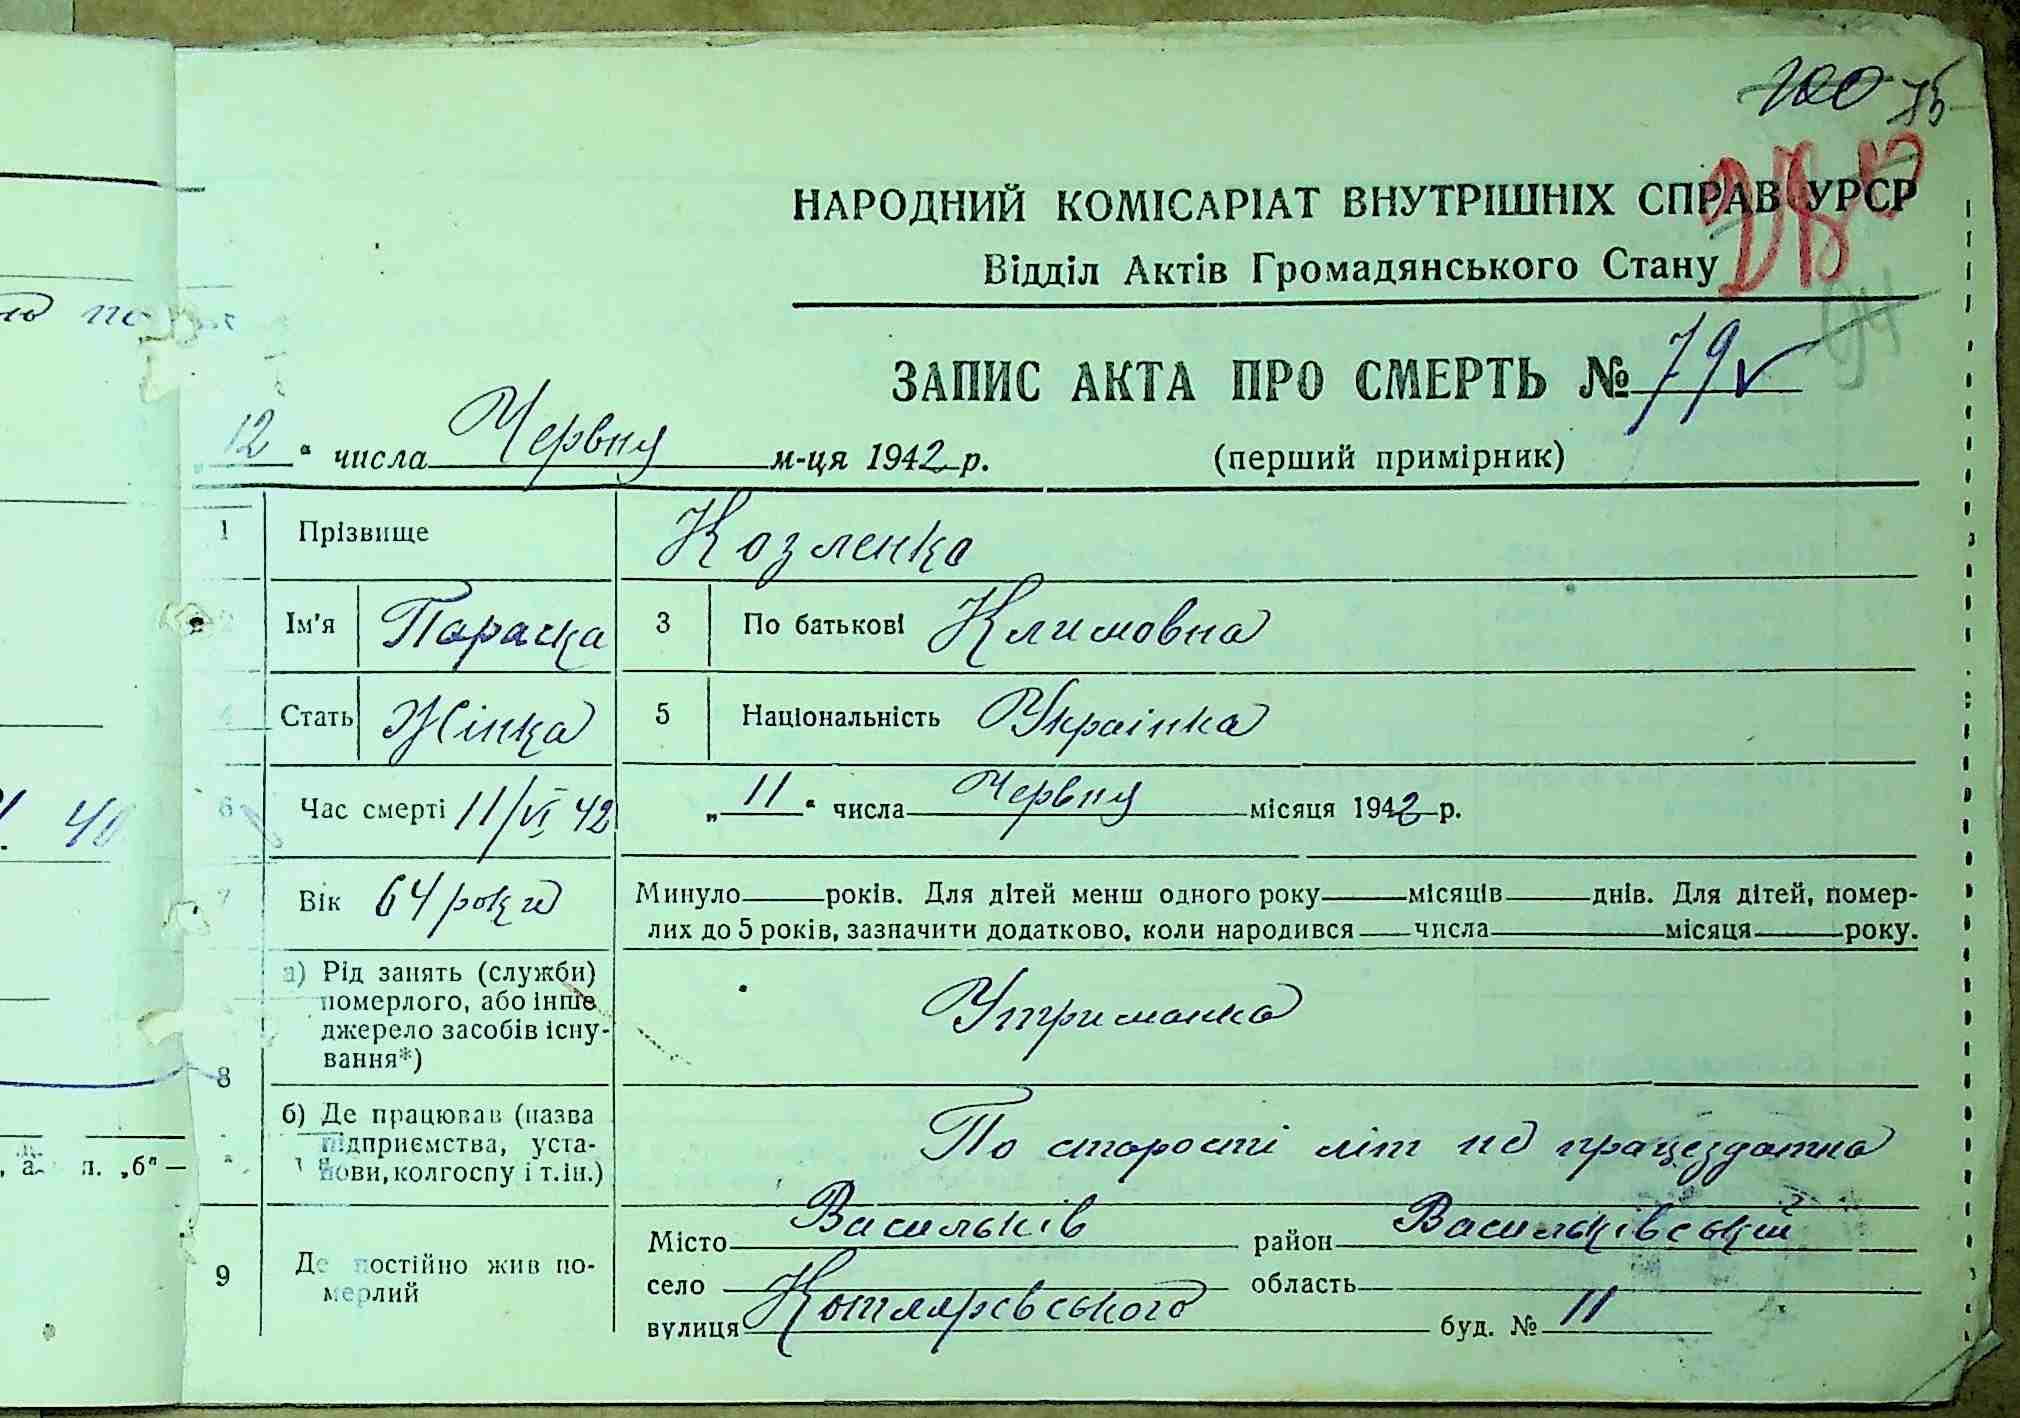 75
НАРОДНИЙ КОМІСАРІАТ ВНУТРІШНІХ СПРАВ УРСР
Відділ Актів Громадянського Стану
ЗАПИС АКТА ПРО СМЕРТЬ № 79
„12“ числа Червня м-ця 1942 р. (перший примірник)
1 Прізвище Козленко
2 Ім'я Параска 3 По батькові Климовна
4 Стать Жінка 5 Національність Українка
6 Час смерті 11/VI 42 „11“ числа Червня місяця 1942 р.
7 Вік 64 роки Минуло років. Для дітей менш одного року місяців днів. Для дітей, помер-
лих до 5 років, зазначити додатково, коли народився числа місяця року.
8 а) Рід занять (служби) померлого, або інше джерело засобів існу-вання*) Утриманка
б) Де працював (назва підприємства, уста-нови, колгоспу і т.ін.) По старости літ не працездатна
9 Де постійно жив по-мерлий
Місто Васильків район Васильківський
село область
вулиця Котляревського буд. № 11